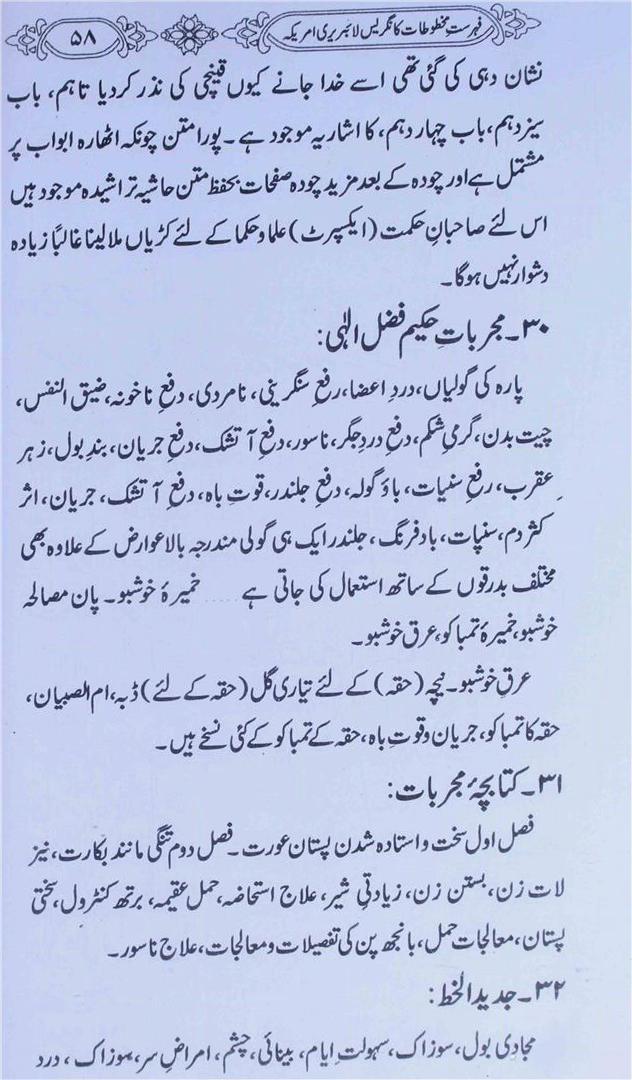 فہرست مخطوطات کانگریس لائبریری امریکہ
۵۸
نشان دہی کی گئی تھی اسے خدا جانے کیوں قینچی کی نذر کر دیا تاہم، باب
سیزدہم، باب چہار دہم، کا اشاریہ موجود ہے۔ پورا متن چونکہ اٹھارہ ابواب پر
مشتمل ہے اور چودہ کے بعد مزید چودہ صفحات بحفظ متن حاشیہ تراشیدہ موجود ہیں
اس لئے صاحبانِ حکمت (ایکسپرٹ) علما و حکما کے لئے کڑیاں ملا لینا غالباً زیادہ
دشوار نہیں ہوگا۔
۳۰۔ مجرباتِ حکیم فضل الٰہی:
پارہ کی گولیاں، دردِ اعضا، رفعِ سنگرینی، نامردی، دفعِ ناخونہ، ضیق النفس،
چیت بدن، گرمیِ شکم، دفعِ دردِ جگر، ناسور، دفعِ آتشک، دفعِ جریان، بندِ بول، زہر
عقرب، رفعِ سنیات، باؤ گولہ، دفعِ جلندر، قوتِ باہ، دفعِ آتشک، جریان، اثر
کثر دم، سنپات، بادفرنگ، جلندر ایک ہی گولی مندرجہ بالا عوارض کے علاوہ بھی
مختلف بدرقوں کے ساتھ استعمال کی جاتی ہے ..... خمیرۂ خوشبو۔ پان مصالحہ
خوشبو، خمیرۂ تمباکو، عرق خوشبو۔
عرقِ خوشبو۔ نیچہ (حقہ) کے لئے تیاری گل (حقہ کے لئے) ڈبہ، ام الصبیان،
حقہ کا تمباکو، جریان و قوتِ باہ، حقہ کے تمباکو کے کئی نسخے ہیں۔
۳۱۔ کتابچۂ مجربات:
فصل اول سخت و استادہ شدن پستان عورت۔ فصل دوم تنگی مانند بکارت، نیز
لات زن، بستن زن، زیادتیِ شیر، علاج استحاضہ، حمل عقیمہ، برتھ کنٹرول، سختی
پستان، معالجات حمل، بانجھ پن کی تفصیلات و معالجات، علاج ناسور۔
۳۲۔ جدید الخط:
مجادی بول، سوزاک، سہولتِ ایام، بینائی، چشم، امراضِ سر، سوزاک، درد